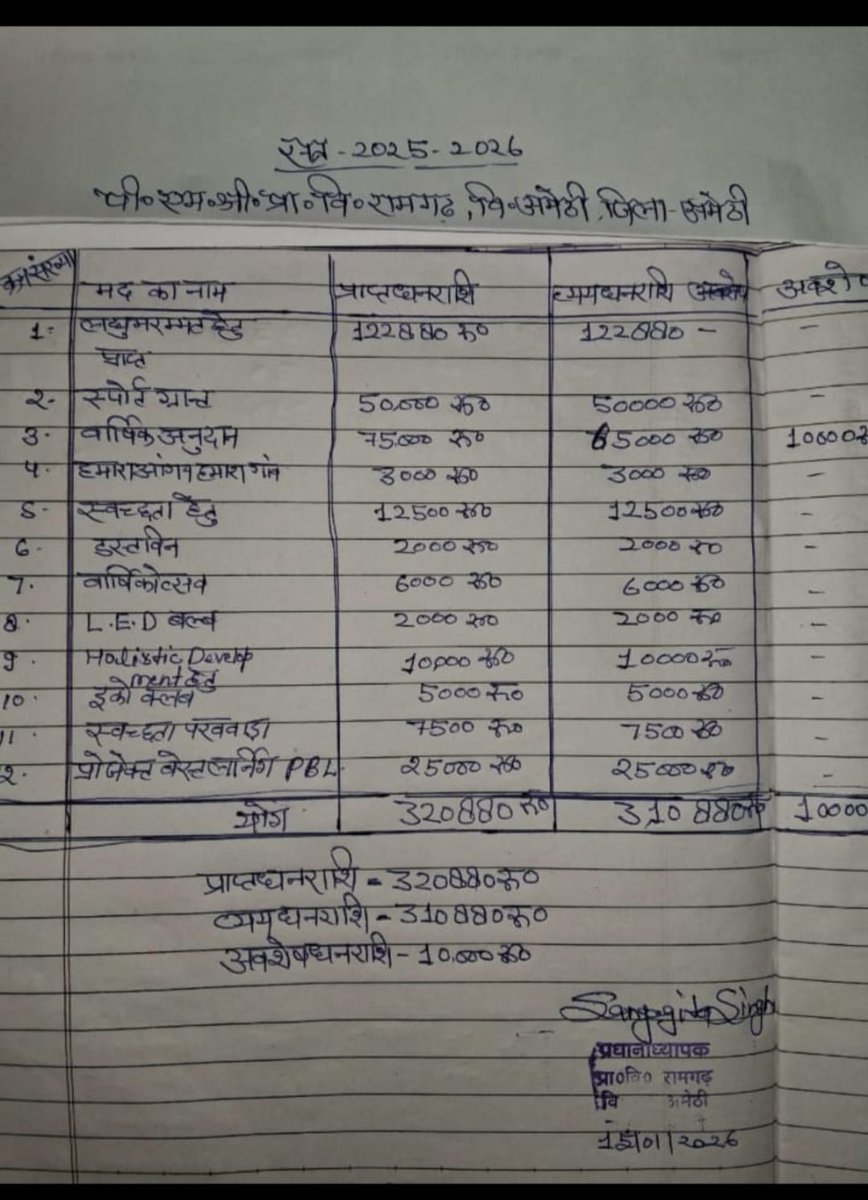 सत्र - 2025-2026
पी०एम०श्री०प्रा०वि०रामगढ़, वि०अमेठी, जिला-अमेठी
मद का नाम प्राप्तधनराशि व्ययधनराशि अवशे
1- लघुमरम्मत हेतु 122880 रु० 122880 - -
प्राप्त
2- स्पोर्ट ग्रान्ट 50,000 रु० 50000 रु० -
3. वार्षिक अनुदान 75000 रु० 65000 रु० 10000रु
4. हमारा आंगन हमारा 3000 रु० 3000 रु० -
5- स्वच्छता हेतु 12500 रु० 12500 रु० -
6. डस्टविन 2000 रु० 2000 रु० -
7. वार्षिकोत्सव 6000 रु० 6000 रु० -
8. L.E.D बल्ब 2000 रु० 2000 रु० -
9. Holistic Develop 10,000 रु० 10000 रु० -
ment हेतु
10. इको क्लब 5000 रु० 5000 रु० -
11. स्वच्छता पखवाड़ा 7500 रु० 7500 रु० -
2. प्रोजेक्ट वेस्ट लर्निंग PBL. 25000 रु० 25000 रु० -
योग 320880 रु० 310880 रु० 10000
प्राप्तधनराशि - 320880 रु०
व्ययधनराशि - 310880 रु०
अवशेषधनराशि - 10,000 रु०
Sangita Singh
प्रधानाध्यापक
प्रा०वि० रामगढ़
वि अमेठी
/01/2026